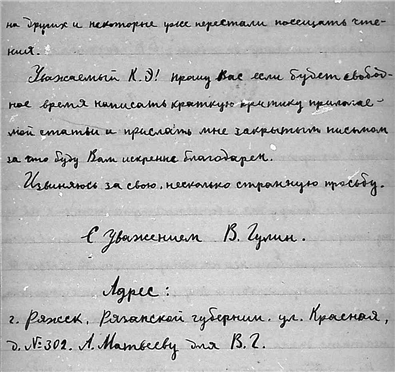 на других и некоторые уже перестали посещать чте-
ния.
Уважаемый К.Э! прошу Вас если будет свобод-
ное время написать краткую критику прилагае-
мой статьи и прислать мне закрытым письмом
за что буду Вам искренне благодарен.
Извиняюсь за свою, несколько странную просьбу.
С уважением В. Гулин.
Адрес:
г. Ряжск, Рязанской губернии. ул. Красная,
д. № 302. А. Матвееву для В.Г.